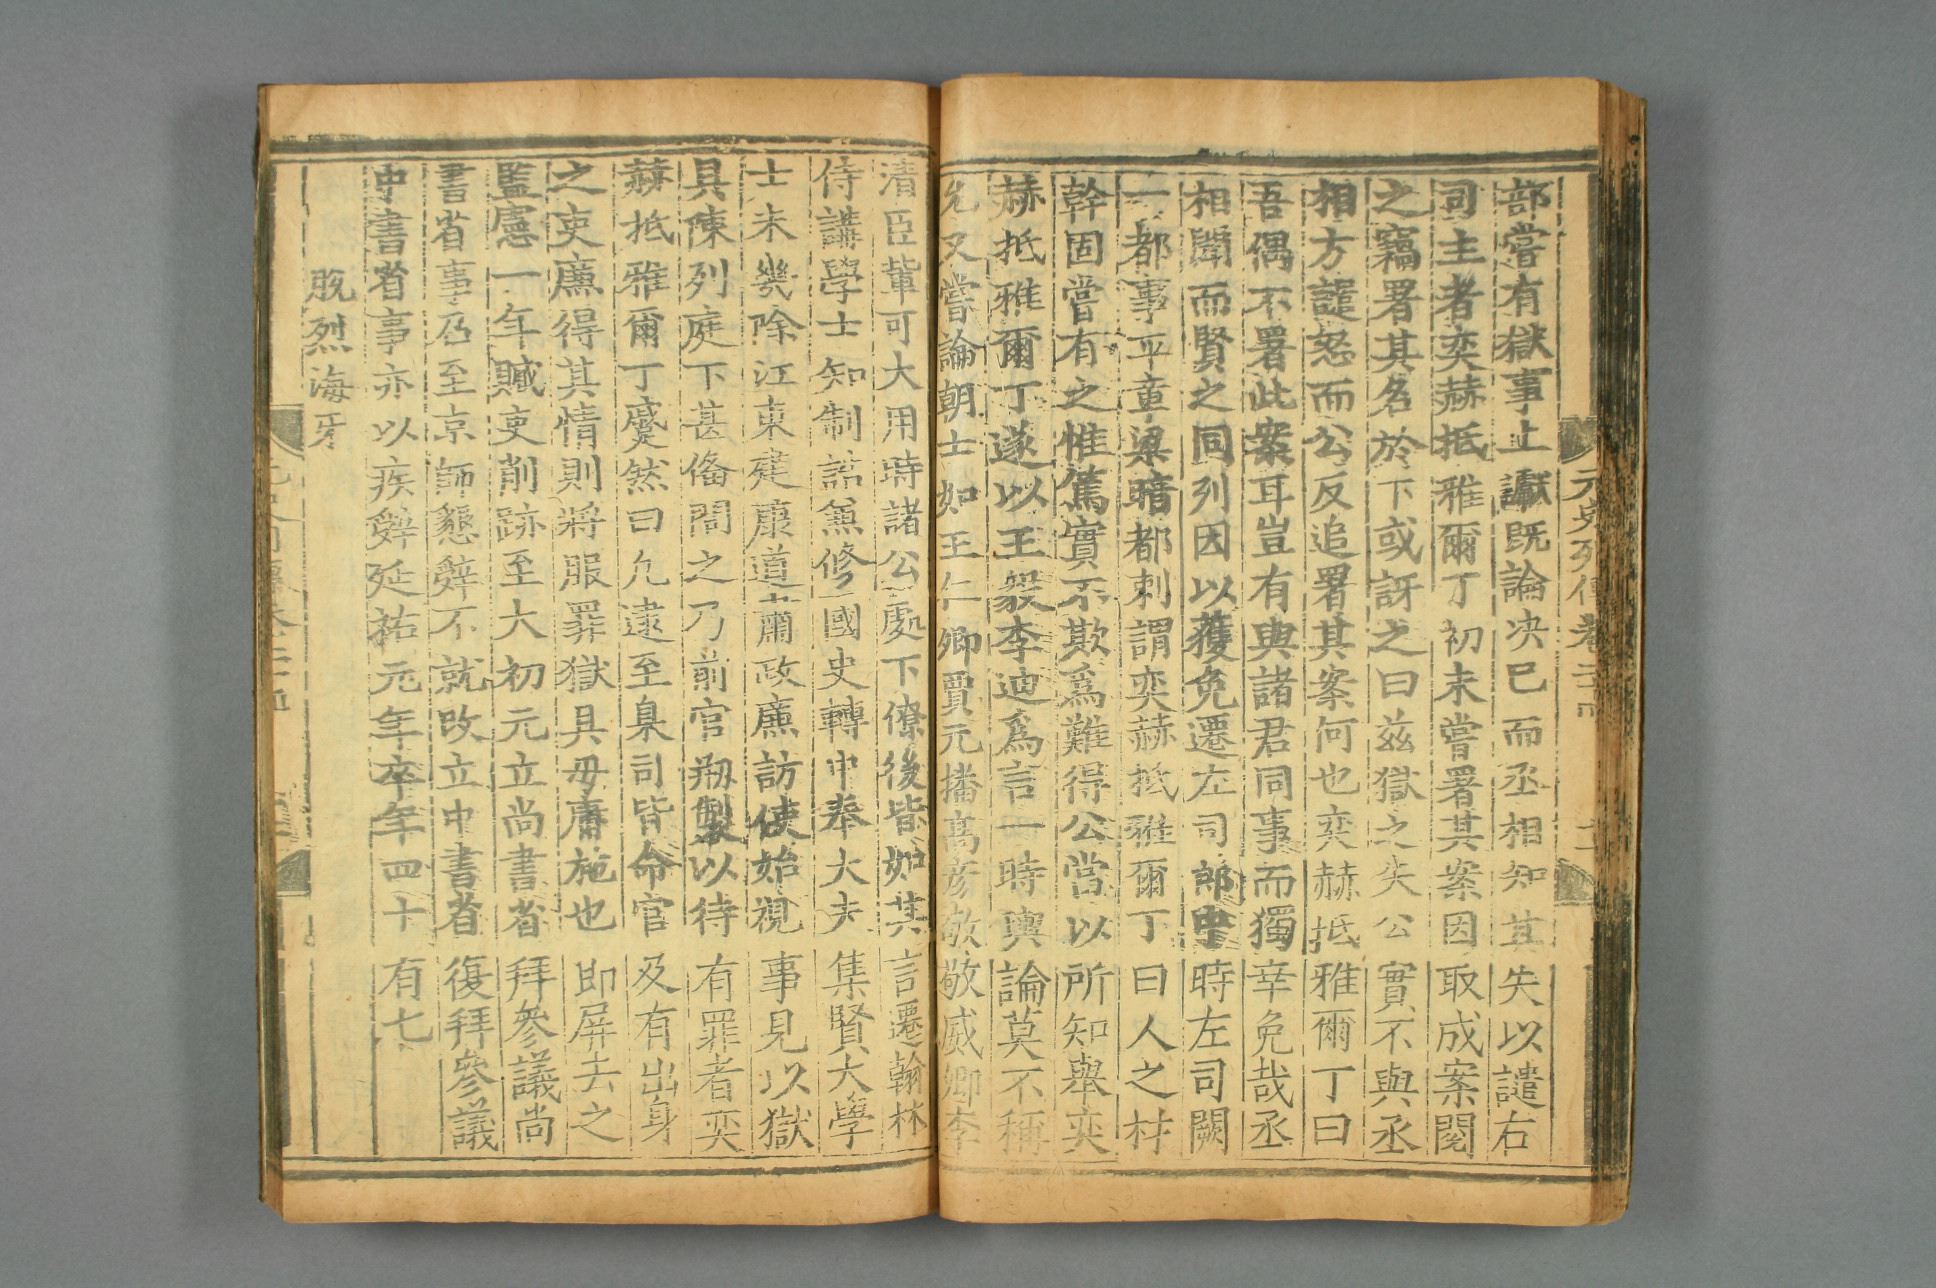 部嘗有獄事上讞既論決已而丞相知其失以譴右
司主者奕赫抵雅爾丁初未嘗署其案因取成案閱
之竊署其名於下或訝之曰茲獄之失公實不與丞
相方譴怒而公反追署其案何也奕赫抵雅爾丁曰
吾偶不署此案耳豈有與諸君同事而獨幸免哉丞
相聞而賢之同列因以獲免遷左司郎中時左司闕
一都事平章梁暗都剌謂奕赫抵雅爾丁曰人之材
幹固嘗有之惟篤實不欺爲難得公當以所知舉奕
赫抵雅爾丁遂以王毅李迪爲言一時輿論莫不稱
允又嘗論朝士如王仁卿賈元播高彥敬敬威卿李
清臣輩可大用時諸公處下僚後皆如其言遷翰林
侍講學士知制誥兼修國史轉中奉大夫集賢大學
士未幾除江東建康道肅政廉訪使始視事見以獄
具陳列庭下甚備問之乃前官刱製以待有罪者奕
赫抵雅爾丁蹙然曰凡逮至臬司皆命官及有出身
之吏廉得其情則將服罪獄具毋庸施也即屏去之
監憲一年贓吏削跡至大初元立尚書省拜參議尚
書省事乃至京師懇辭不就改立中書省復拜參議
中書省事亦以疾辭延祐元年卒年四十有七
脫烈海牙
元史列傳卷二十四